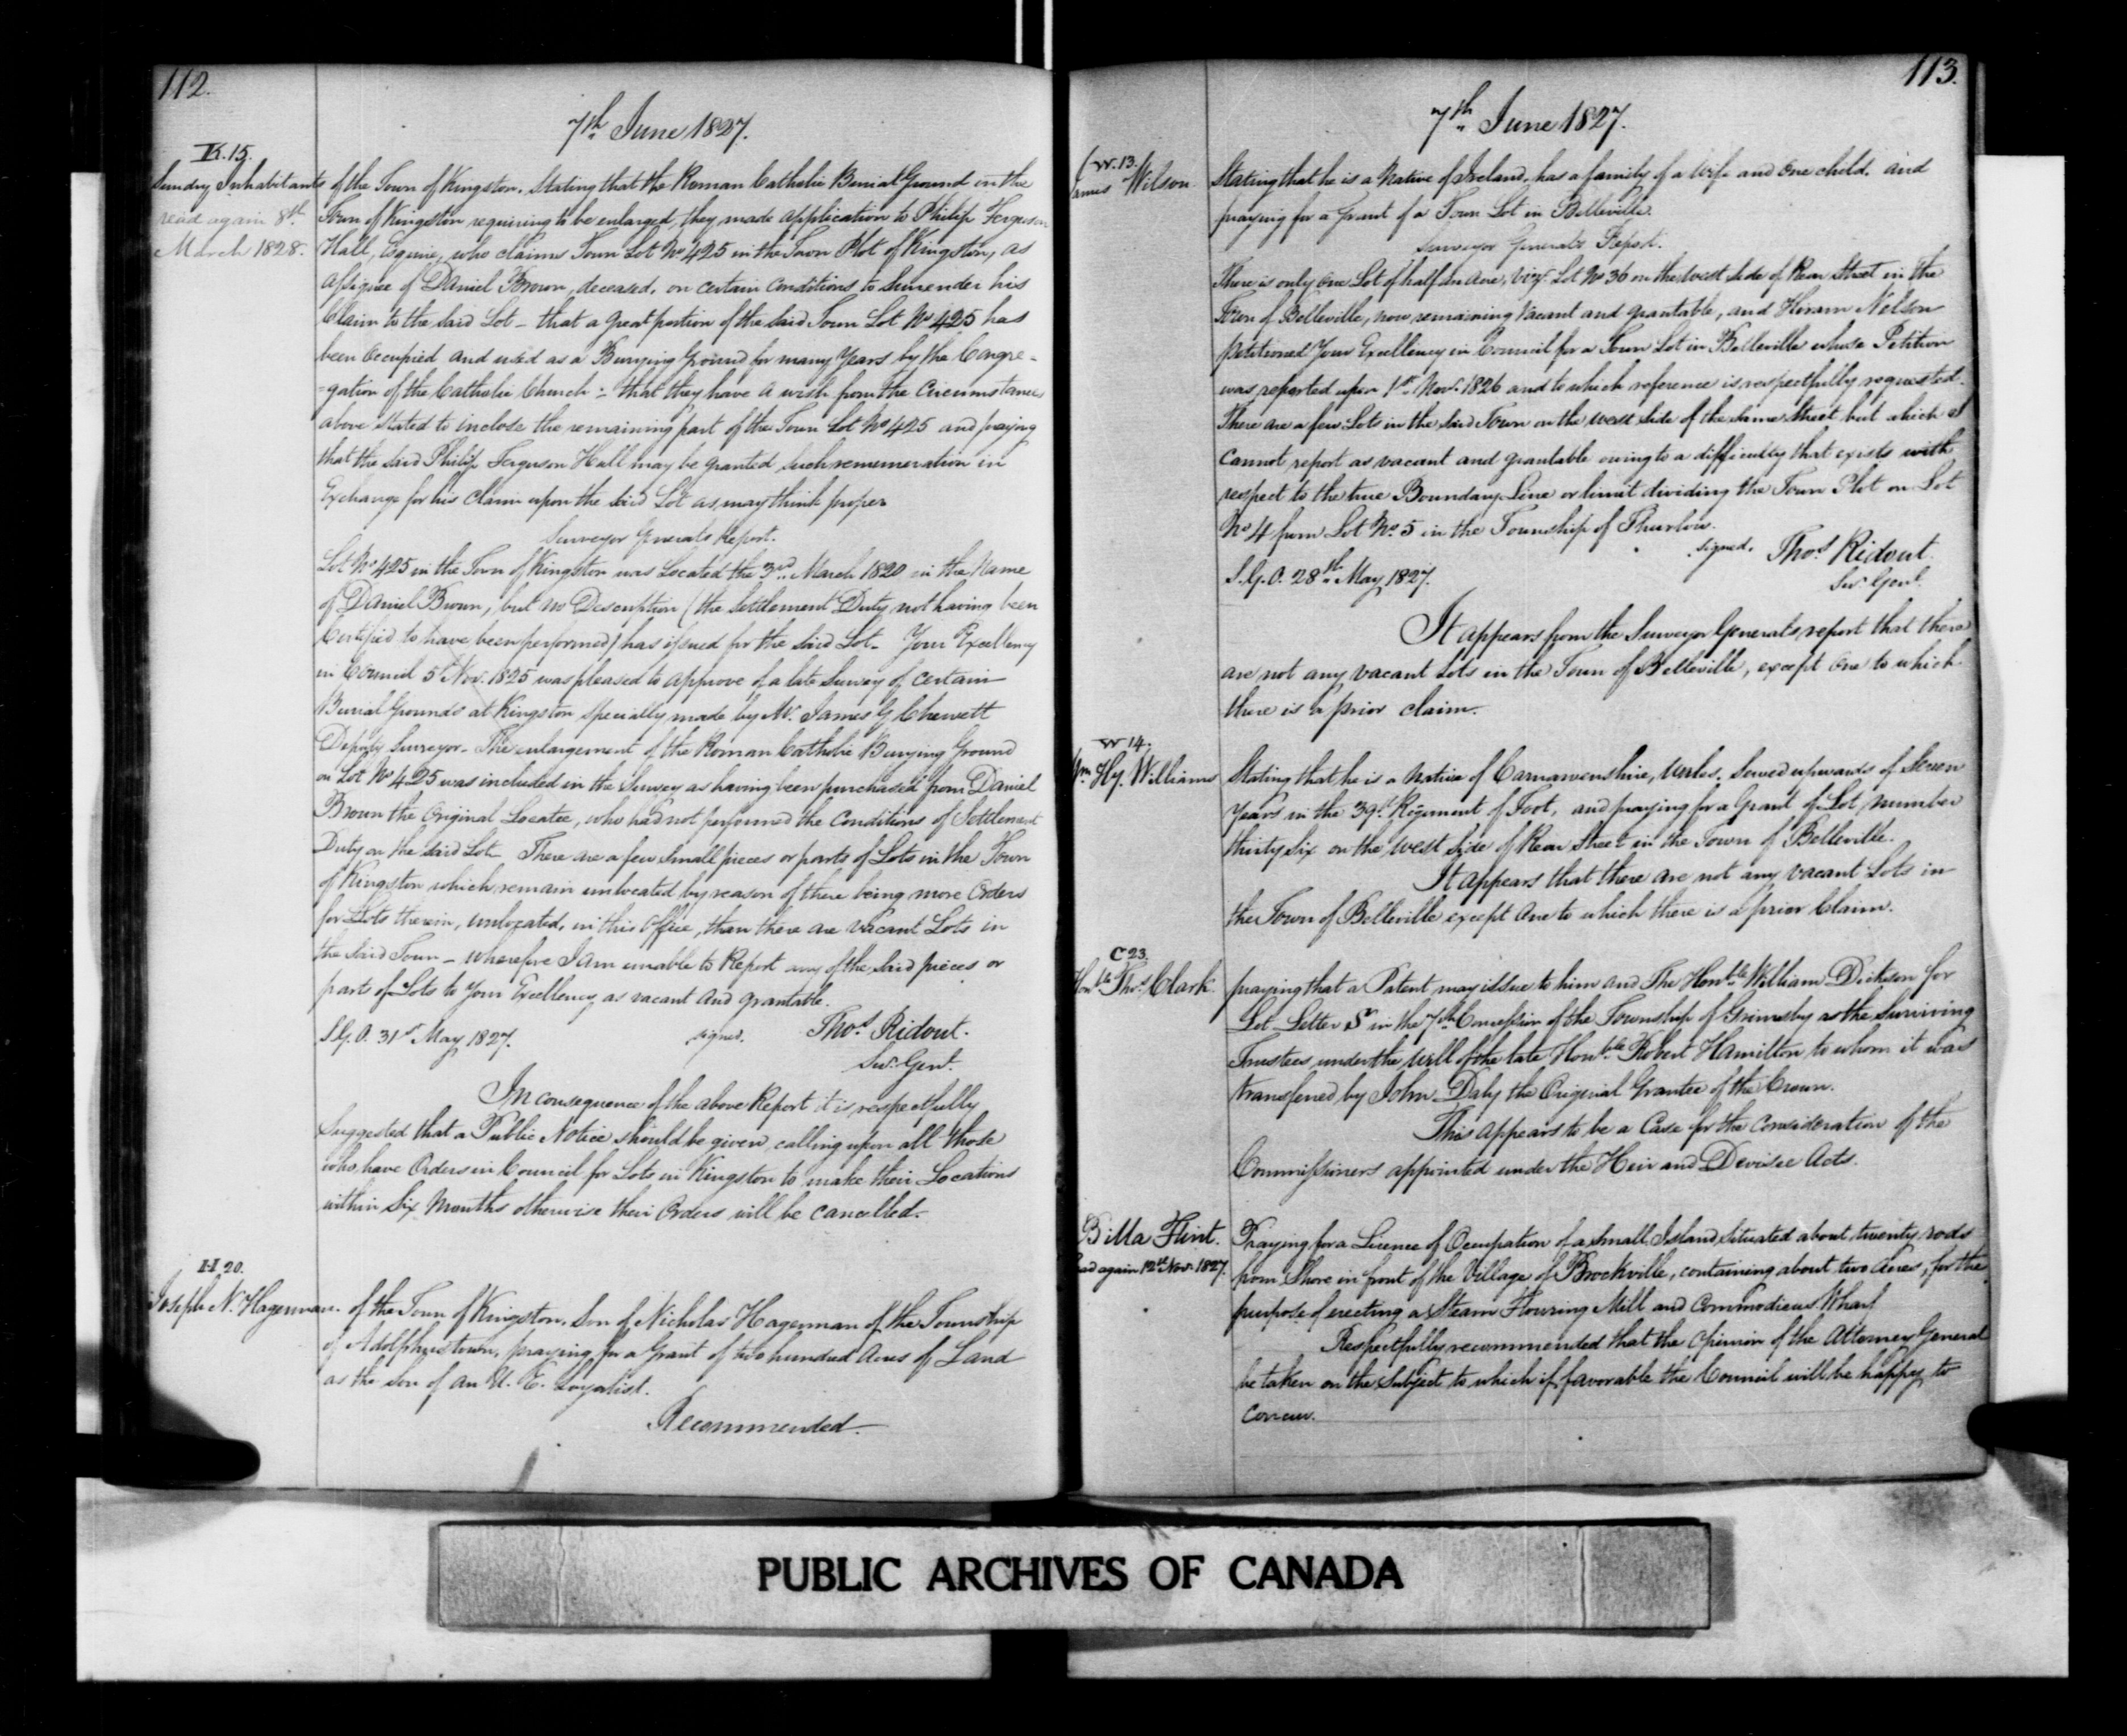 112.
7th June 1827.
K.15.
Sundry Inhabitants of the Town of Kingston. Stating that the Roman Catholic Burial Ground in the
read again 8th
March 1828.
Town of Kingston requiring to be enlarged, they made application to Philip Ferguson
Hall, Esquire, who claims Town Lot No 425 in the Town Plot of Kingston, as
assignee of Daniel Brown, deceased, on certain conditions to surrender his
Claim to the said Lot - that a great portion of the said Town Lot No 425 has
been Occupied and used as a Burying Ground for many Years by the Congre-
=gation of the Catholic Church :- that they have a wish from the Circumstances
above stated to inclose the remaining part of the Town Lot No 425 and praying
that the said Philip Ferguson Hall may be granted such remuneration in
Exchange for his Claim upon the said Lot as may think proper
Surveyor Generals Report.
Lot No 425 in the Town of Kingston was Located the 3rd March 1820 in the Name
of Daniel Brown, but no Description (the Settlement Duty not having been
Certified to have been performed) has issued for the said Lot - Your Excellency
in Council 5 Nov. 1825 was pleased to approve of a late Survey of certain
Burial Grounds at Kingston specially made by Mr. James G Chewett
Deputy Surveyor - The enlargement of the Roman Catholic Burying Ground
on Lot No 425 was included in the Survey as having been purchased from Daniel
Brown the Original Locatee, who had not performed the Conditions of Settlement
Duty on the said Lot - There are a few small pieces or parts of Lots in the Town
of Kingston which remain unlocated by reason of there being more Orders
for Lots therein, unlocated, in this Office, than there are vacant Lots in
the said Town - wherefore I am unable to Report any of the said pieces or
parts of Lots to Your Excellency as vacant and grantable.
S.G.O. 31st May 1827. signed. Thos Ridout.
Sur. Genl.
In consequence of the above Report it is respectfully
Suggested that a Public Notice should be given, calling upon all those
who have Orders in Council for Lots in Kingston to make their Locations
within Six Months otherwise their Orders will be cancelled.
H 20.
Joseph N. Hagerman. of the Town of Kingston. Son of Nicholas Hagerman of the Township
of Adolphustown, praying for a Grant of two hundred Acres of Land
as the Son of an U. E. Loyalist.
Recommended.
113.
7th June 1827.
W.13.
James Wilson Stating that he is a Native of Ireland, has a family of a wife and one child. and
praying for a Grant of a Town Lot in Belleville.
Surveyor Generals Report.
There is only one Lot of half an Acre, viz. Lot No 36 on the West Side of Rear Street in the
Town of Belleville, now remaining vacant and grantable, and Hiram Nelson
petitioned Your Excellency in Council for a Town Lot in Belleville whose Petition
was reported upon 1st Nov. 1826 and to which reference is respectfully requested.
There are a few Lots in the said Town on the West Side of the same Street but which I
cannot report as vacant and grantable owing to a difficulty that exists with
respect to the true Boundary Line or limit dividing the Town Plot on Lot
No 4 from Lot No. 5 in the Township of Thurlow.
signed. Thos Ridout.
S.G.O. 28th May 1827. Sur. Genl.
It appears from the Surveyor Generals report that there
are not any vacant Lots in the Town of Belleville, except one to which
there is a prior claim.
W 14.
Wm Hy. Williams Stating that he is a Native of Carnarvonshire, Wales, Served upwards of Seven
Years in the 39th Regiment of Foot, and praying for a Grant of Lot number
thirty Six on the West Side of Rear Street in the Town of Belleville.
It appears that there are not any vacant Lots in
the Town of Belleville except one to which there is a prior Claim.
C 23.
Honble Thos Clark praying that a Patent may issue to him and The Honble William Dickson for
Lot Letter in the 7th Concession of the Township of Grimsby as the Surviving
Trustees under the Will of the late Honble Robert Hamilton to whom it was
transferred by John Daly the Original Grantee of the Crown.
This appears to be a Case for the consideration of the
Commissioners appointed under the Heir and Devisee Acts.
Billa Flint. Praying for a Licence of Occupation of a small Island situated about twenty rods
read again 12th Nov. 1827. from Shore in front of the Village of Brockville, containing about two Acres, for the
purpose of erecting a Steam Flouring Mill and Commodious Wharf
Respectfully recommended that the Opinion of the Attorney General
be taken on the Subject to which if favorable the Council will be happy to
Concur.
PUBLIC ARCHIVES OF CANADA